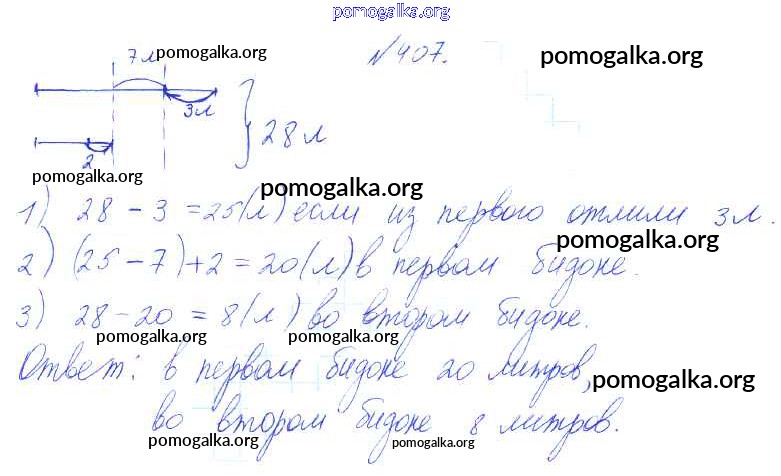 pomogalka.org
7л pomogalka.org №407. pomogalka.org
3л
} 28 л
2
pomogalka.org
pomogalka.org
1) 28 - 3 = 25(л) если из первого отлили 3л.
pomogalka.org
2) (25 - 7) + 2 = 20(л) в первом бидоне.
3) 28 - 20 = 8(л) во втором бидоне.
pomogalka.org pomogalka.org
Ответ: в первом бидоне 20 литров,
pomogalka.org
во втором бидоне 8 литров.
pomogalka.org pomogalka.org